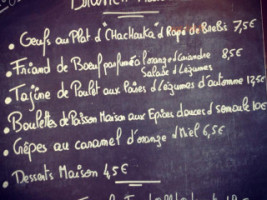 • Oeufs au Plat d'"Chachouka" d'Rapé de Brebis 7,5€
• Friand de Boeuf parfumé à l'orange d'Coriandre 8,5€
Salade d'Légumes
• Tajine de Poulet aux Poires d'Légumes d'automne 13,5€
• Boulettes de Poisson Maison aux Epices douces d'semoule 10€
• Crêpes au caramel d'orange d'Miel 6,5€
• Desserts Maison 4,5€